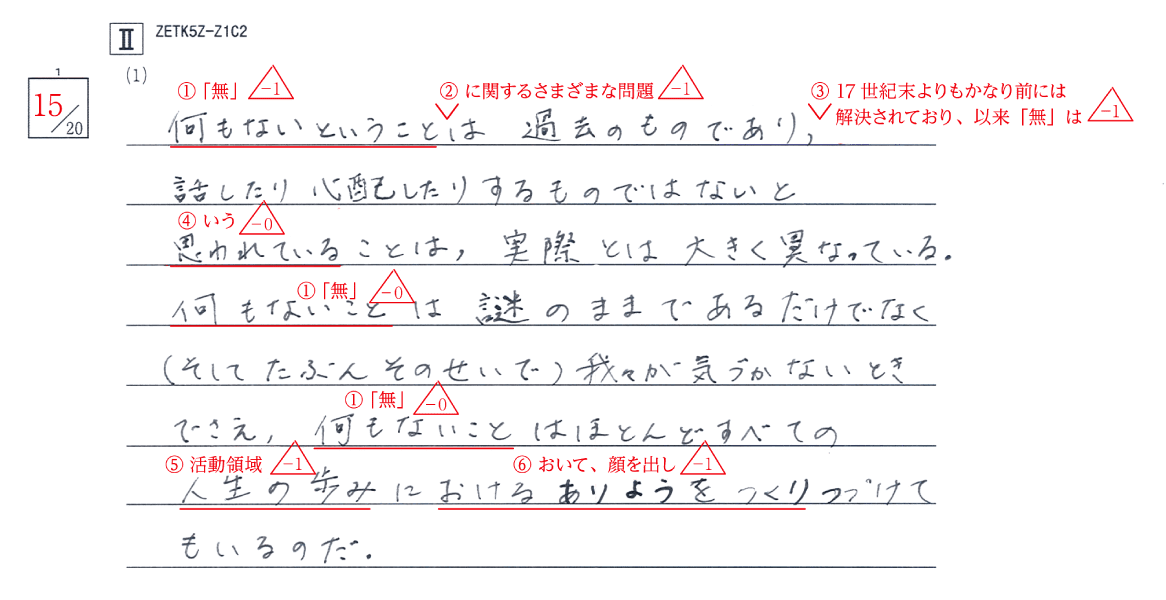 Ⅱ ZETK5Z-Z1C2
1
(1)
15/20
①「無」 -1 ② に関するさまざまな問題 -1 ③ 17世紀末よりもかなり前には
解決されており、以来「無」は -1
何もないということは 過去のものであり,
話したり心配したりするものではないと
④ いう -0
思われていることは, 実際とは大きく異なっている.
①「無」 -0
何もないことは 謎のままであるだけでなく
(そしてたぶんそのせいで)我々が気づかないとき
①「無」 -0
でさえ, 何もないことはほとんどすべての
⑤ 活動領域 -1 ⑥ おいて、顔を出し -1
人生の歩みにおけるありようをつくりつづけて
もいるのだ.